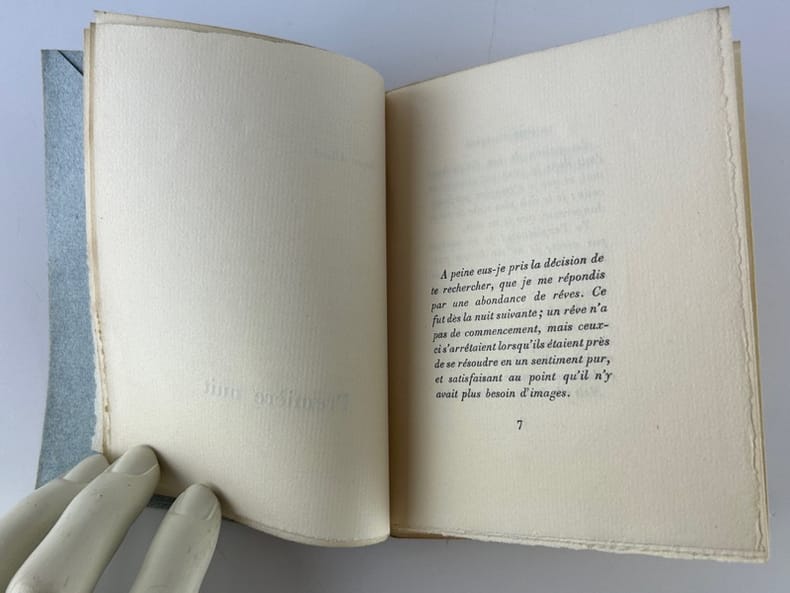 Première nuit
A peine eus-je pris la décision de
te rechercher, que je me répondis
par une abondance de rêves. Ce
fut dès la nuit suivante ; un rêve n'a
pas de commencement, mais ceux-
ci s'arrêtaient lorsqu'ils étaient près
de se résoudre en un sentiment pur,
et satisfaisant au point qu'il n'y
avait plus besoin d'images.
7